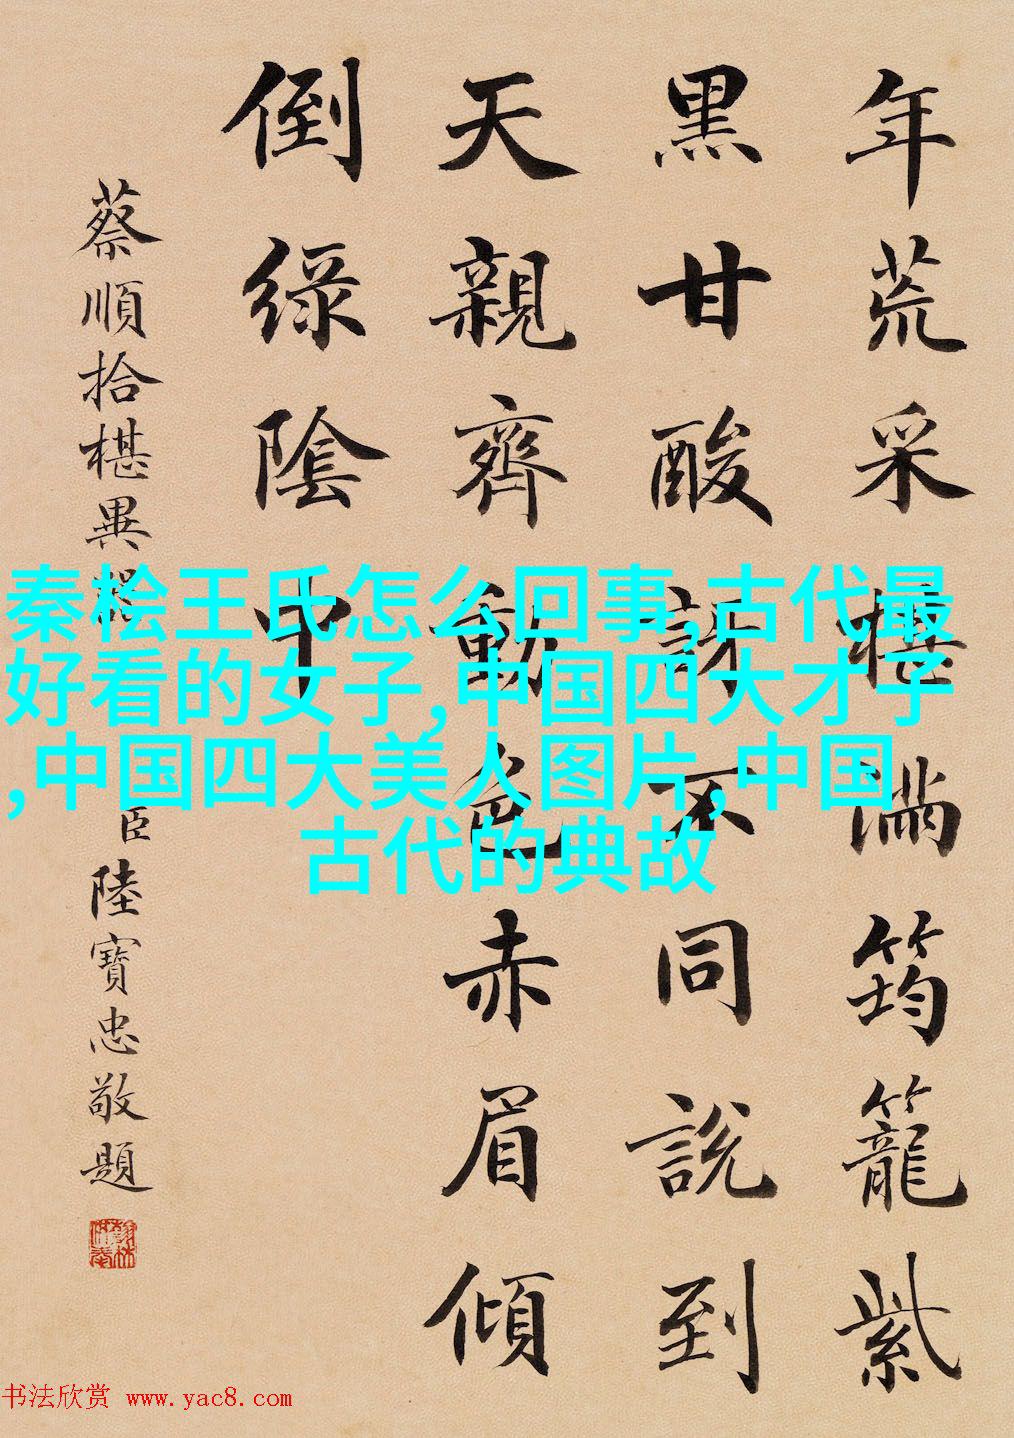 年荒采椹滿筠籠紫
黑甘酸訝不同說到
天親齊動色赤眉傾
倒綠陰中
蔡順拾椹異器
臣陸寶忠敬題
秦桧王氏怎么回事,古代最
好看的女子,中国四大才子
,中国四大美人图片,中国
古代的典故
书法欣赏 www.yac8.com